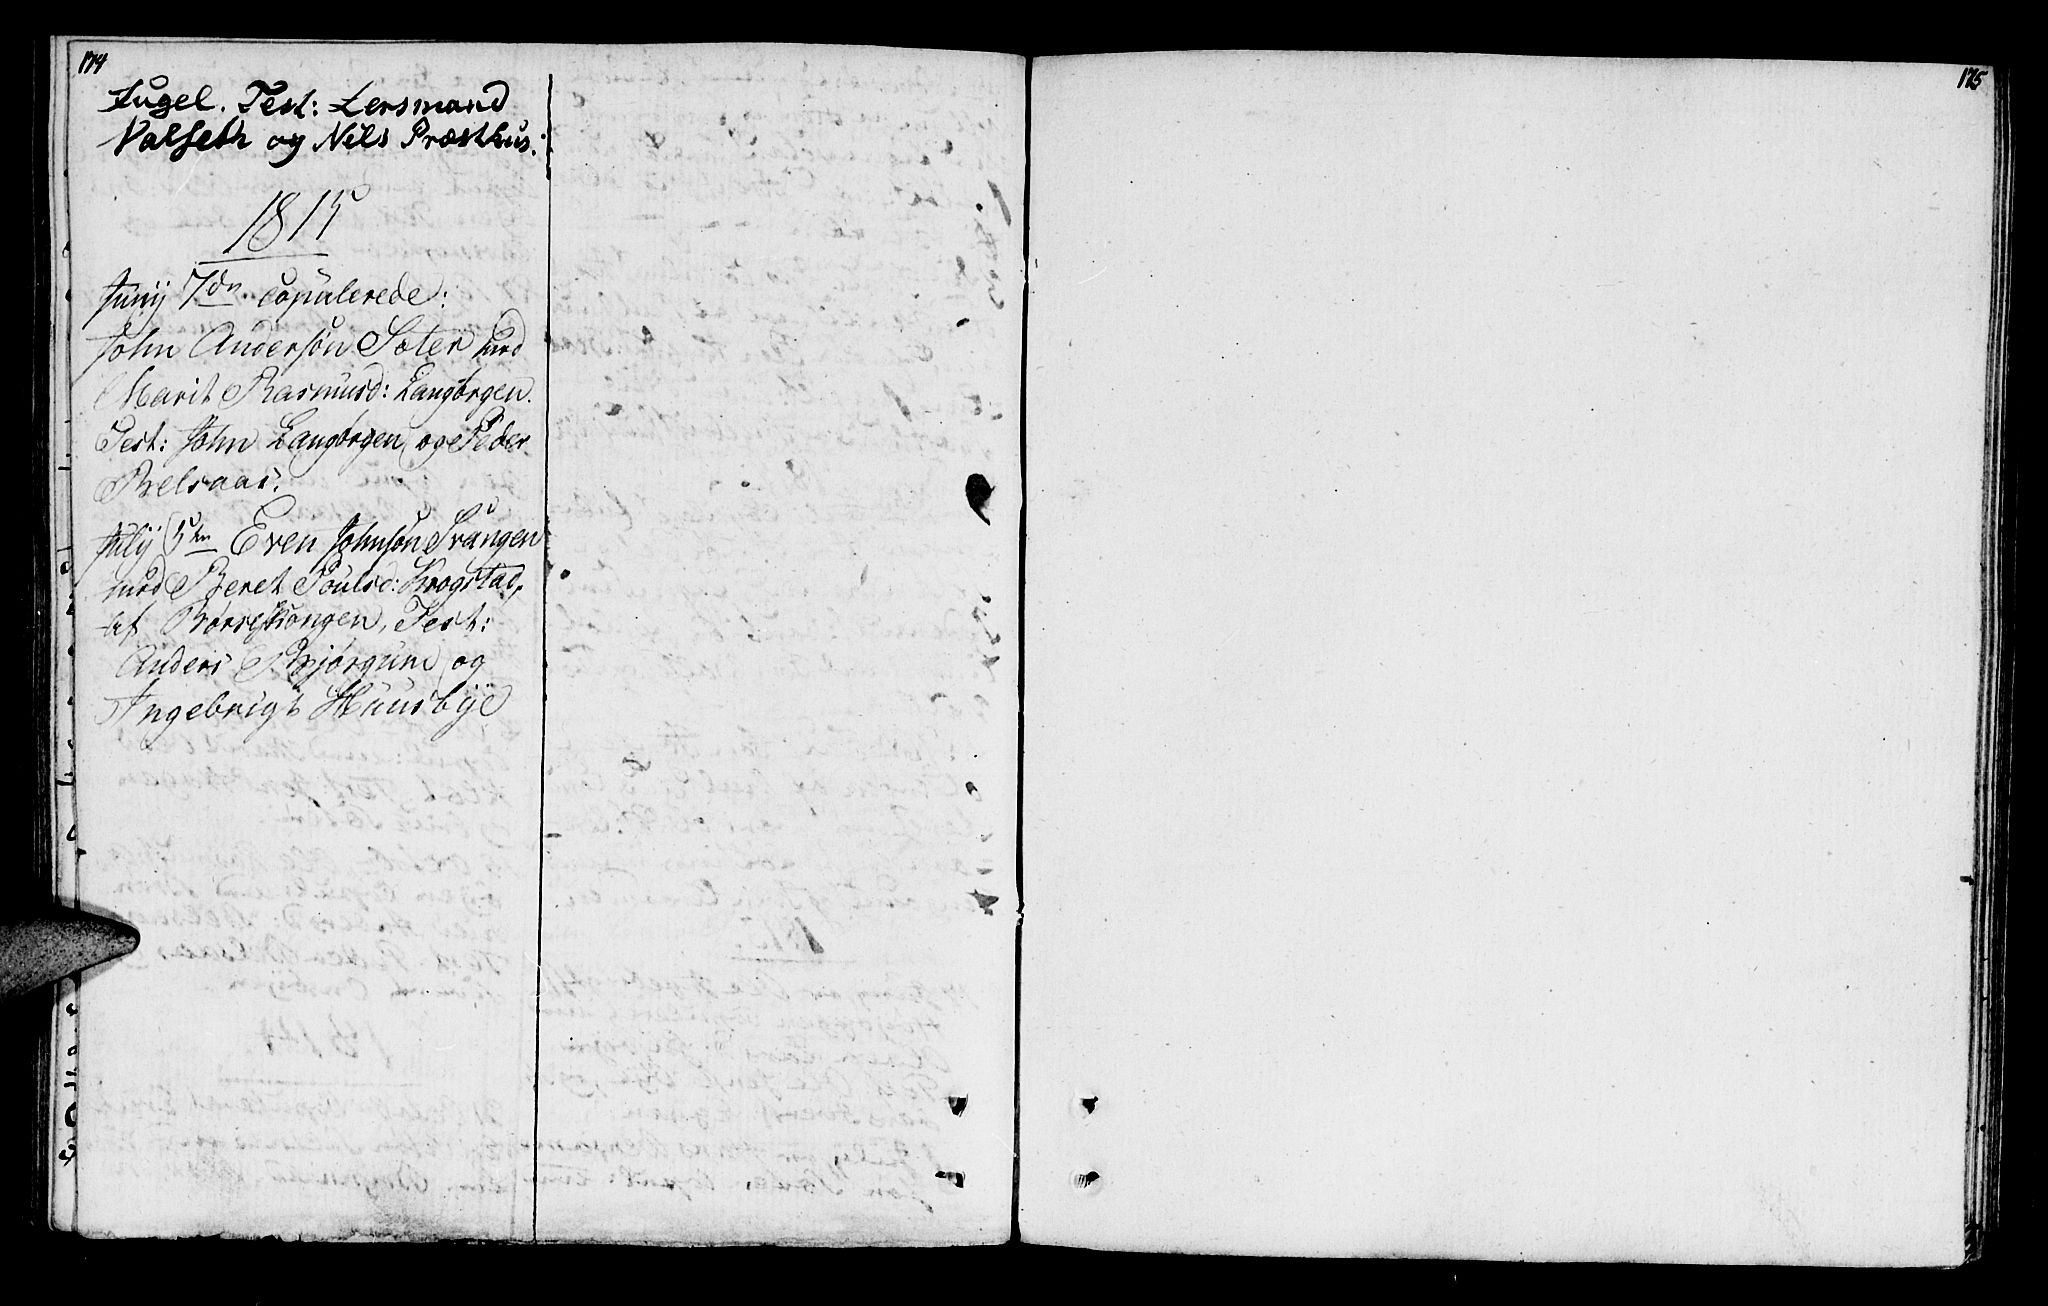 174
Fugel. Test: Lensmand
Valseth og Nils Præsthus.
1815
Junij 7de. copulerede:
John Andersøn Sæter med
Marit Rasmusd: Langørgen.
Test: John Langørgen og Peder
Belsaas.
Julij 5te Even Johnsøn Svangen
med Beret Poulsd: Krogstad,
af Børseskongen, Test:
Anders Bjørgum og
Ingebrigt Huusbye
175